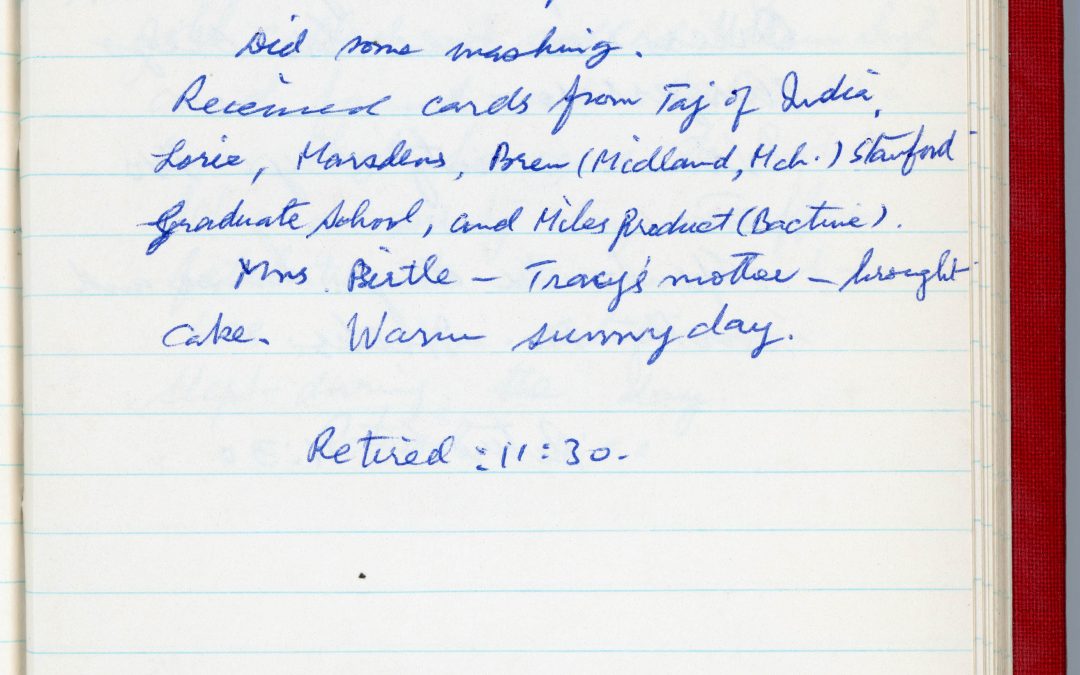 Did some washing.
Received cards from Taj of India,
Lorie, Marsdens, Bren (Midland, Mch.) Stanford
Graduate School, and Miles Product (Bactine).
Mrs. Birtle – Tracy's mother – brought
cake. Warm sunny day.
Retired : 11:30.